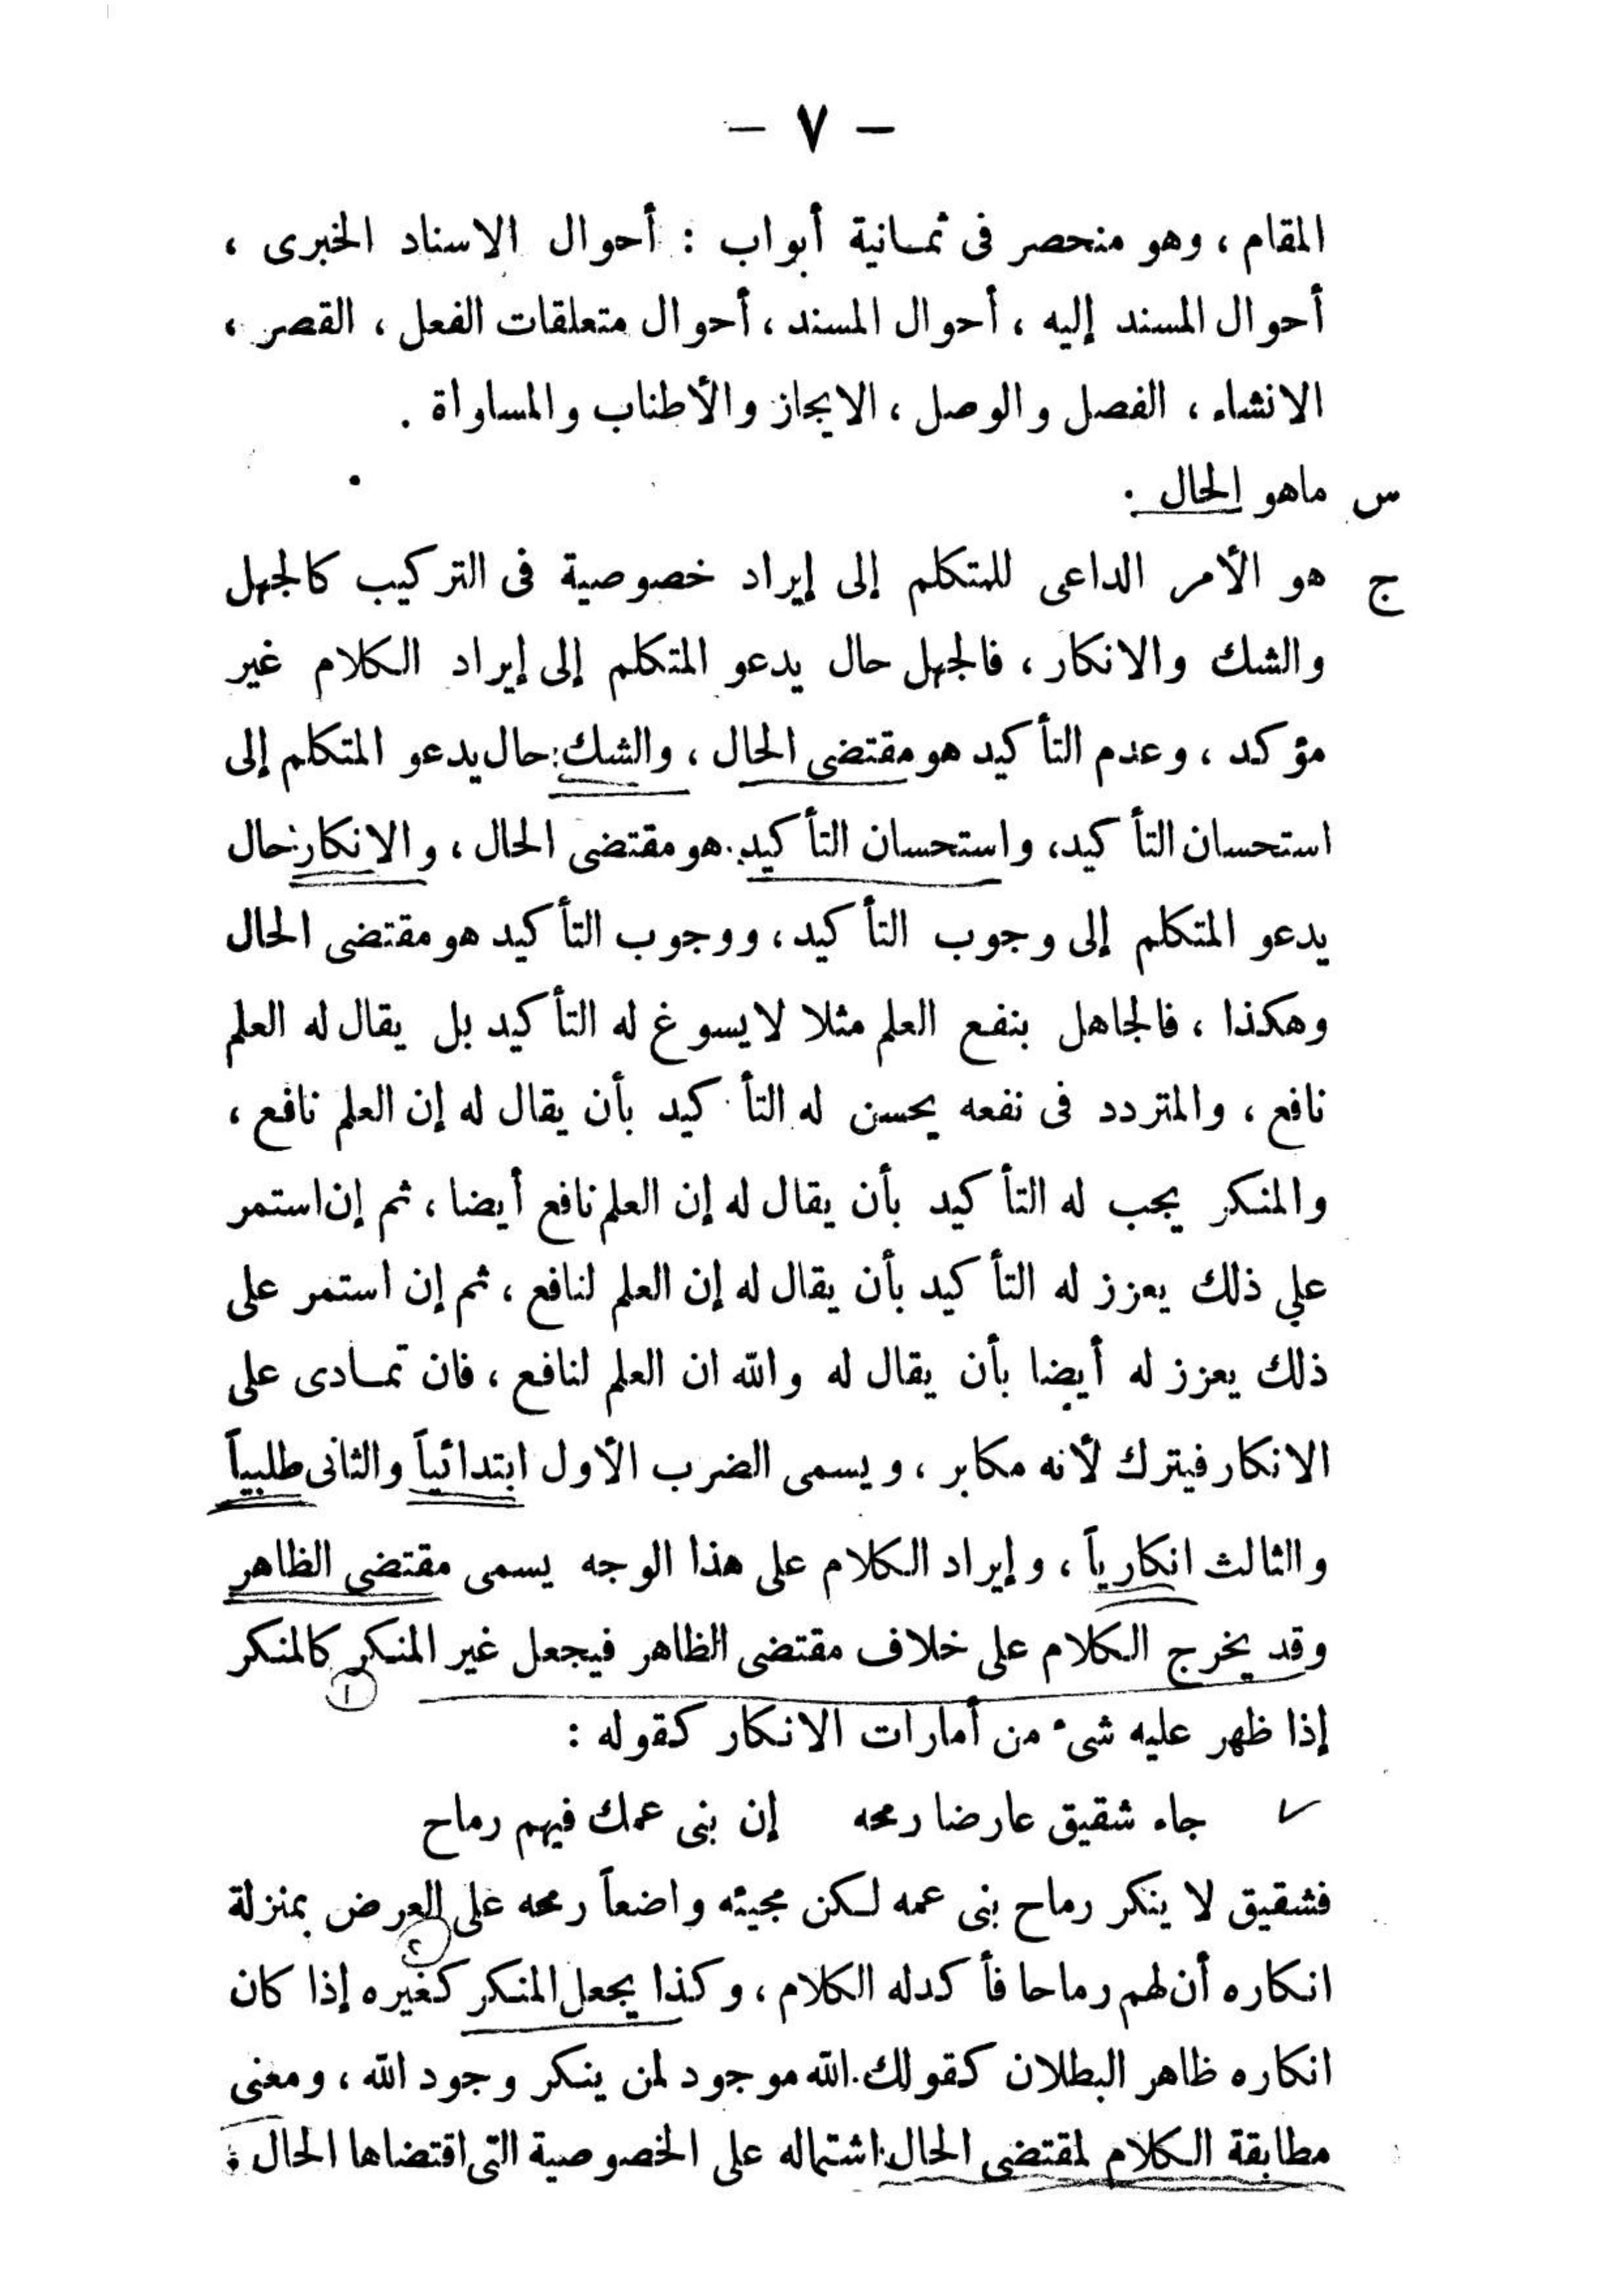 — ٧ —
المقام ، وهو منحصر فى ثمـانية أبواب : أحوال الاسناد الخبرى ،
أحوال المسند إليه ، أحوال المسند ، أحوال متعلقات الفعل ، القصر ،
الانشاء ، الفصل والوصل ، الايجاز والأطناب والمساواة .
س ماهو الحال .
ج هو الأمر الداعى للمتكلم إلى إيراد خصوصية فى التركيب كالجهل
والشك والانكار ، فالجهل حال يدعو المتكلم إلى إيراد الكلام غير
مؤكد ، وعدم التأكيد هو مقتضى الحال ، والشك حال يدعو المتكلم إلى
استحسان التأكيد ، واستحسان التأكيد هو مقتضى الحال ، والانكار حال
يدعو المتكلم إلى وجوب التأكيد ، ووجوب التأكيد هو مقتضى الحال
وهكذا ، فالجاهل بنفع العلم مثلا لايسوغ له التأكيد بل يقال له العلم
نافع ، والمتردد فى نفعه يحسن له التأكيد بأن يقال له إن العلم نافع ،
والمنكر يجب له التأكيد بأن يقال له إن العلم نافع أيضا ، ثم إن استمر
على ذلك يعزز له التأكيد بأن يقال له إن العلم لنافع ، ثم إن استمر على
ذلك يعزز له أيضا بأن يقال له والله ان العلم لنافع ، فان تمـادى على
الانكار فيترك لأنه مكابر ، ويسمى الضرب الأول ابتدائياً والثانى طلبياً
والثالث انكارياً ، وإيراد الكلام على هذا الوجه يسمى مقتضى الظاهر
وقد يخرج الكلام على خلاف مقتضى الظاهر فيجعل غير المنكر كالمنكر
١
إذا ظهر عليه شىء من أمارات الانكار كقوله :
جاء شقيق عارضا رمحه إن بنى عمك فيهم رماح
فشقيق لا ينكر رماح بنى عمه لكن مجيئه واضعاً رمحه على العرض بمنزلة
٢
انكاره أن لهم رماحا فأكد له الكلام ، وكذا يجعل المنكر كغيره إذا كان
انكاره ظاهر البطلان كقولك الله موجود لمن ينكر وجود الله ، ومعنى
مطابقة الكلام لمقتضى الحال اشتماله على الخصوصية التى اقتضاها الحال ؛